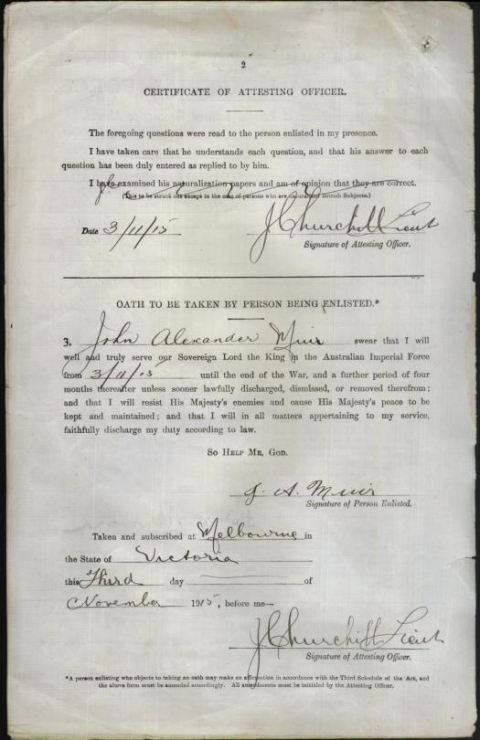 2
CERTIFICATE OF ATTESTING OFFICER.
The foregoing questions were read to the person enlisted in my presence.
I have taken care that he understands each question, and that his answer to each
question has been duly entered as replied to by him.
I have examined his naturalization papers and am of opinion that they are correct.
(This to be struck out except in the case of persons who are naturalized British Subjects.)
Date 3/11/15 J Churchill Lieut
Signature of Attesting Officer.
OATH TO BE TAKEN BY PERSON BEING ENLISTED.*
I, John Alexander Muir swear that I will
well and truly serve our Sovereign Lord the King in the Australian Imperial Force
from 3/11/15 until the end of the War, and a further period of four
months thereafter unless sooner lawfully discharged, dismissed, or removed therefrom;
and that I will resist His Majesty's enemies and cause His Majesty's peace to be
kept and maintained; and that I will in all matters appertaining to my service,
faithfully discharge my duty according to law.
SO HELP ME, GOD.
J. A. Muir
Signature of Person Enlisted.
Taken and subscribed at Melbourne in
the State of Victoria
this Third day of
November 1915, before me—
J Churchill Lieut
Signature of Attesting Officer.
*A person enlisting who objects to taking an oath may make an affirmation in accordance with the Third Schedule of the Act, and
the above form must be amended accordingly. All amendments must be initialed by the Attesting Officer.